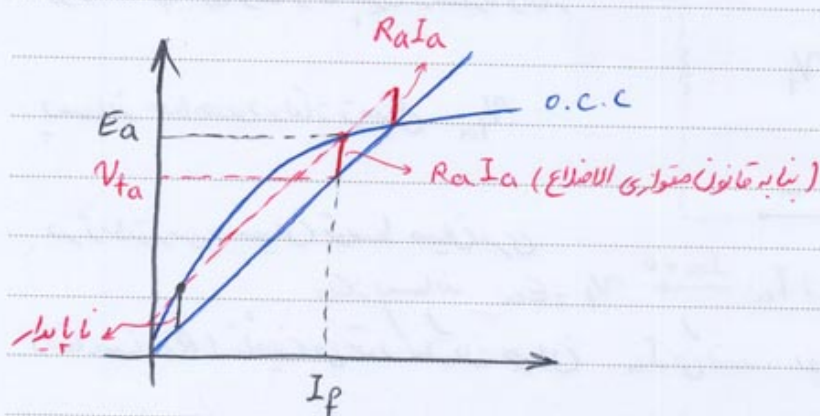 RaIa
O.C.C
Ea
Vta
RaIa (بنا به قانون متوازی الاضلاع)
ناپایدار
If